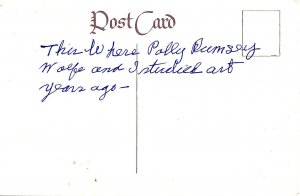 Post Card
This Where Polly Rumsey
Wolfe and I studied art
years ago -